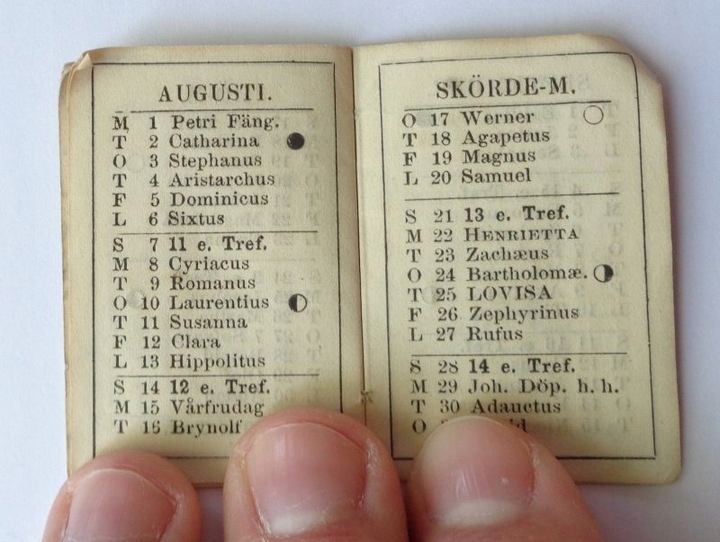 AUGUSTI.
M 1 Petri Fäng.
T 2 Catharina
O 3 Stephanus
T 4 Aristarchus
F 5 Dominicus
L 6 Sixtus
S 7 11 e. Tref.
M 8 Cyriacus
T 9 Romanus
O 10 Laurentius
T 11 Susanna
F 12 Clara
L 13 Hippolitus
S 14 12 e. Tref.
M 15 Vårfrudag
T 16 Brynolf
SKÖRDE-M.
O 17 Werner
T 18 Agapetus
F 19 Magnus
L 20 Samuel
S 21 13 e. Tref.
M 22 HENRIETTA
T 23 Zachæus
O 24 Bartholomæ.
T 25 LOVISA
F 26 Zephyrinus
L 27 Rufus
S 28 14 e. Tref.
M 29 Joh. Döp. h. h.
T 30 Adauctus
O